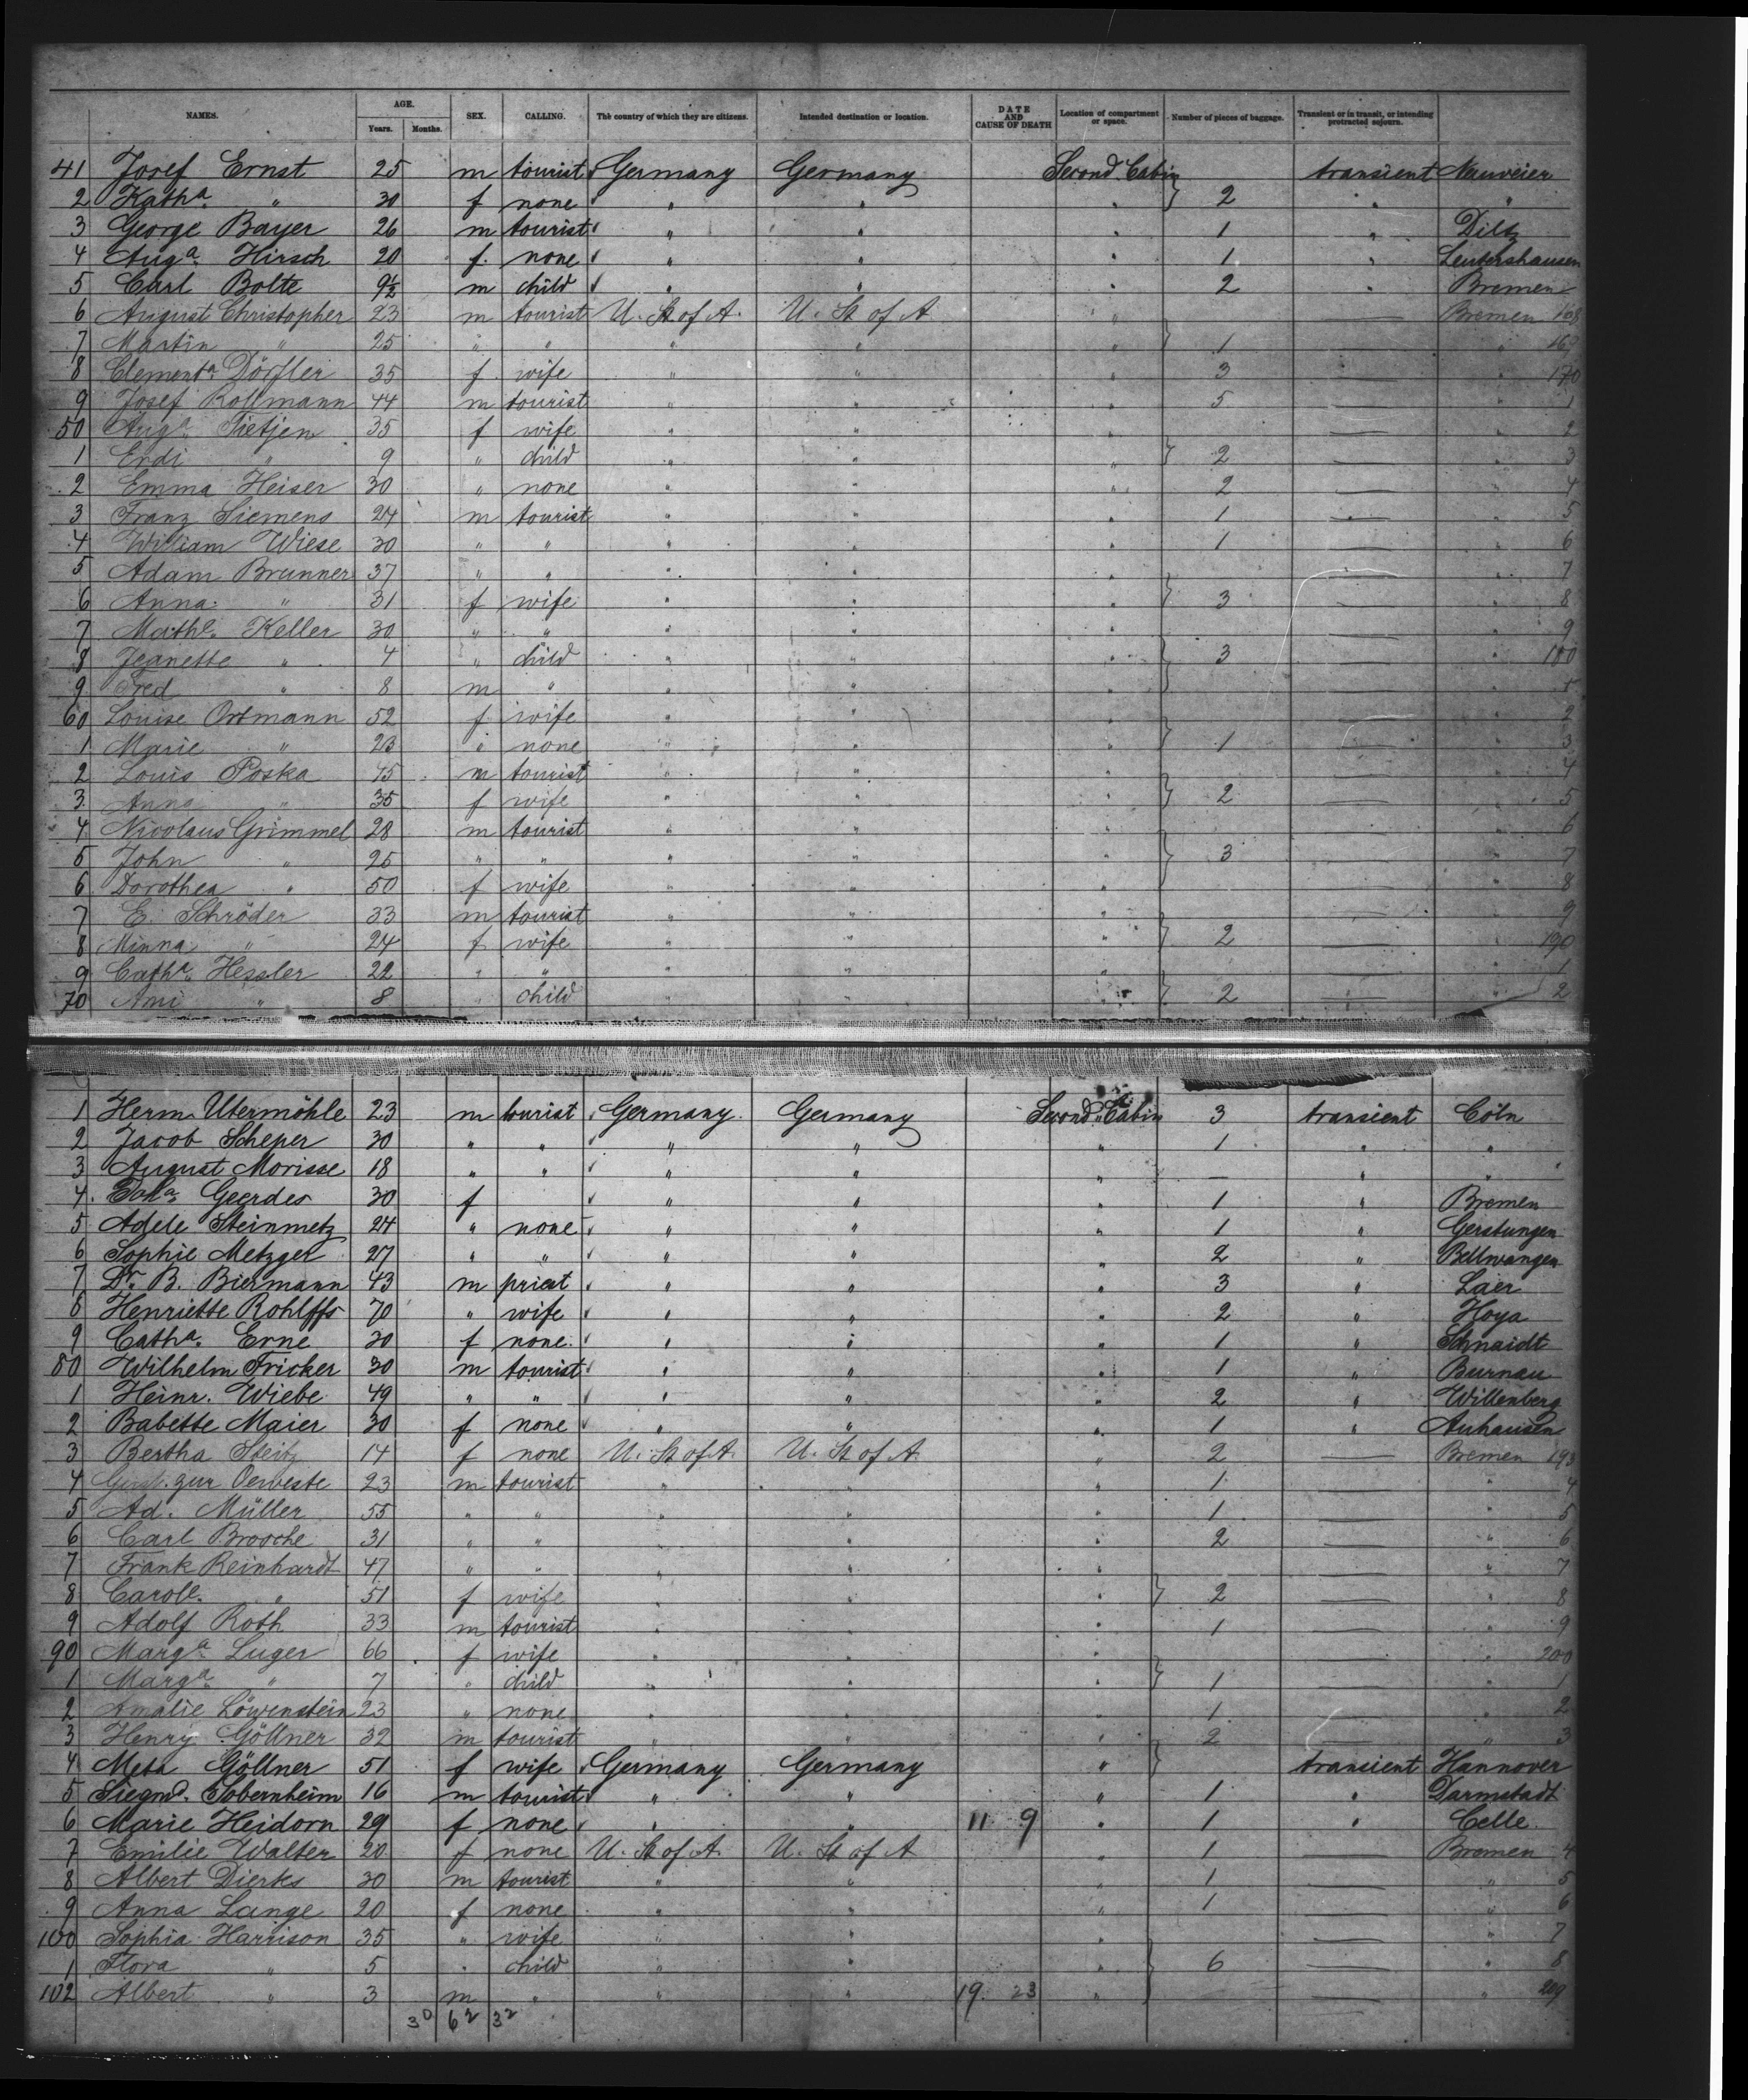 NAMES. AGE. Years. Months. SEX. CALLING. The country of which they are citizens. Intended destination or location. DATE AND CAUSE OF DEATH Location of compartment or space. Number of pieces of baggage. Transient or in transit, or intending protracted sojourn.
41 Josef Ernst 25 m tourist Germany Germany Second Cabin transient Neuweier
2 Katha " 30 f none " " " 2 " "
3 George Bayer 26 m tourist " " " 1 " Diltz
4 Auga Hirsch 20 f. none " " " 1 " Leutershausen
5 Carl Bolte 9½ m child " " " 2 " Bremen
6 August Christopher 23 m tourist U. St of A. U. St of A " — Bremen 168
7 Martin " 25 " " " " " 1 — " 169
8 Clementa Dörfler 35 f wife " " " 3 — " 170
9 Josef Rollmann 44 m tourist " " " 5 — " 1
50 Auga Tietjen 35 f wife " " " — " 2
1 Erdi " 9 " child " " " 2 — " 3
2 Emma Heiser 30 " none " " " 2 — " 4
3 Franz Siemens 24 m tourist " " " 1 — " 5
4 William Wiese 30 " " " " " 1 — " 6
5 Adam Brunner 37 " " " " " — " 7
6 Anna " 31 f wife " " " 3 — " 8
7 Mathe. Keller 30 " " " " " — " 9
8 Jeanette " 4 " child " " " 3 — " 180
9 Fred " 8 m " " " " — "
60 Louise Ortmann 52 f wife " " " — " 2
1 Marie " 23 " none " " " 1 — " 3
2 Louis Poska 45 m tourist " " " — " 4
3 Anna " 35 f wife " " " 2 — " 5
4 Nicolaus Grimmel 28 m tourist " " " — " 6
5 John " 25 " " " " " 3 — " 7
6 Dorothea " 50 f wife " " " — " 8
7 E. Schröder 33 m tourist " " " — " 9
8 Minna " 24 f wife " " " 2 — " 190
9 Catha. Hessler 22 " " " " " — " 1
70 Ami " 8 " child " " " 2 — " 2
1 Herm. Utermöhle 23 m tourist Germany. Germany Second Cabin 3 transient Cöln
2 Jacob Scheper 30 " " " " " 1 " "
3 August Morisse 18 " " " " " — " "
4. Geerdes 30 f " " " 1 " Bremen
5 Adele Steinmetz 24 " none " " " 1 " Gerstungen
6 Sophie Metzger 27 " " " " " 2 " Bellwangen
7 Dr. B. Biermann 43 m priest " " " 3 " Laer
8 Henriette Rohlffs 70 " wife " " " 2 " Hoya
9 Catha. Erne 30 f none. " " " 1 " Schnaidt
80 Wilhelm Fricker 30 m tourist " " " 1 " Burnau
1 Heinr. Wiebe 49 " " " " " 2 " Willenberg
2 Babette Maier 30 f none " " " 1 " Auhausen
3 Bertha Steitz 14 f none U. St of A. U. St of A. " 2 — Bremen 193
4 zur Oeveste 23 m tourist " " " 1 — " 4
5 Ad. Müller 55 " " " " " 1 — " 5
6 Carl Brosche 31 " " " " " 2 — " 6
7 Frank Reinhardt 47 " " " " " — " 7
8 Carole. " 51 f wife " " " 2 — " 8
9 Adolf Roth 33 m tourist " " " 1 — " 9
90 Marga Luger 66 f wife " " " — " 200
1 Marga " 7 " child " " " 1 — " 1
2 Amalie Löwenstein 23 " none " " " 1 — " 2
3 Henry Göllner 32 m tourist " " " 2 — " 3
4 Meta Göllner 51 f wife Germany Germany " transient Hannover
5 Siegmd. Sobernheim 16 m tourist " " " 1 " Darmstadt
6 Marie Heidorn 29 f none " " 11 9 " 1 " Celle.
7 Emilie Walter 20 f none U. St of A. U. St of A " 1 — Bremen 4
8 Albert Dierks 30 m tourist " " " 1 — " 5
9 Anna Lange 20 f none " " " 1 — " 6
100 Sophia Harrison 35 " wife " " " — " 7
1 Flora " 5 " child " " " 6 — " 8
102 Albert " 3 m " " " 19. 23 " — " 209
30 62 32